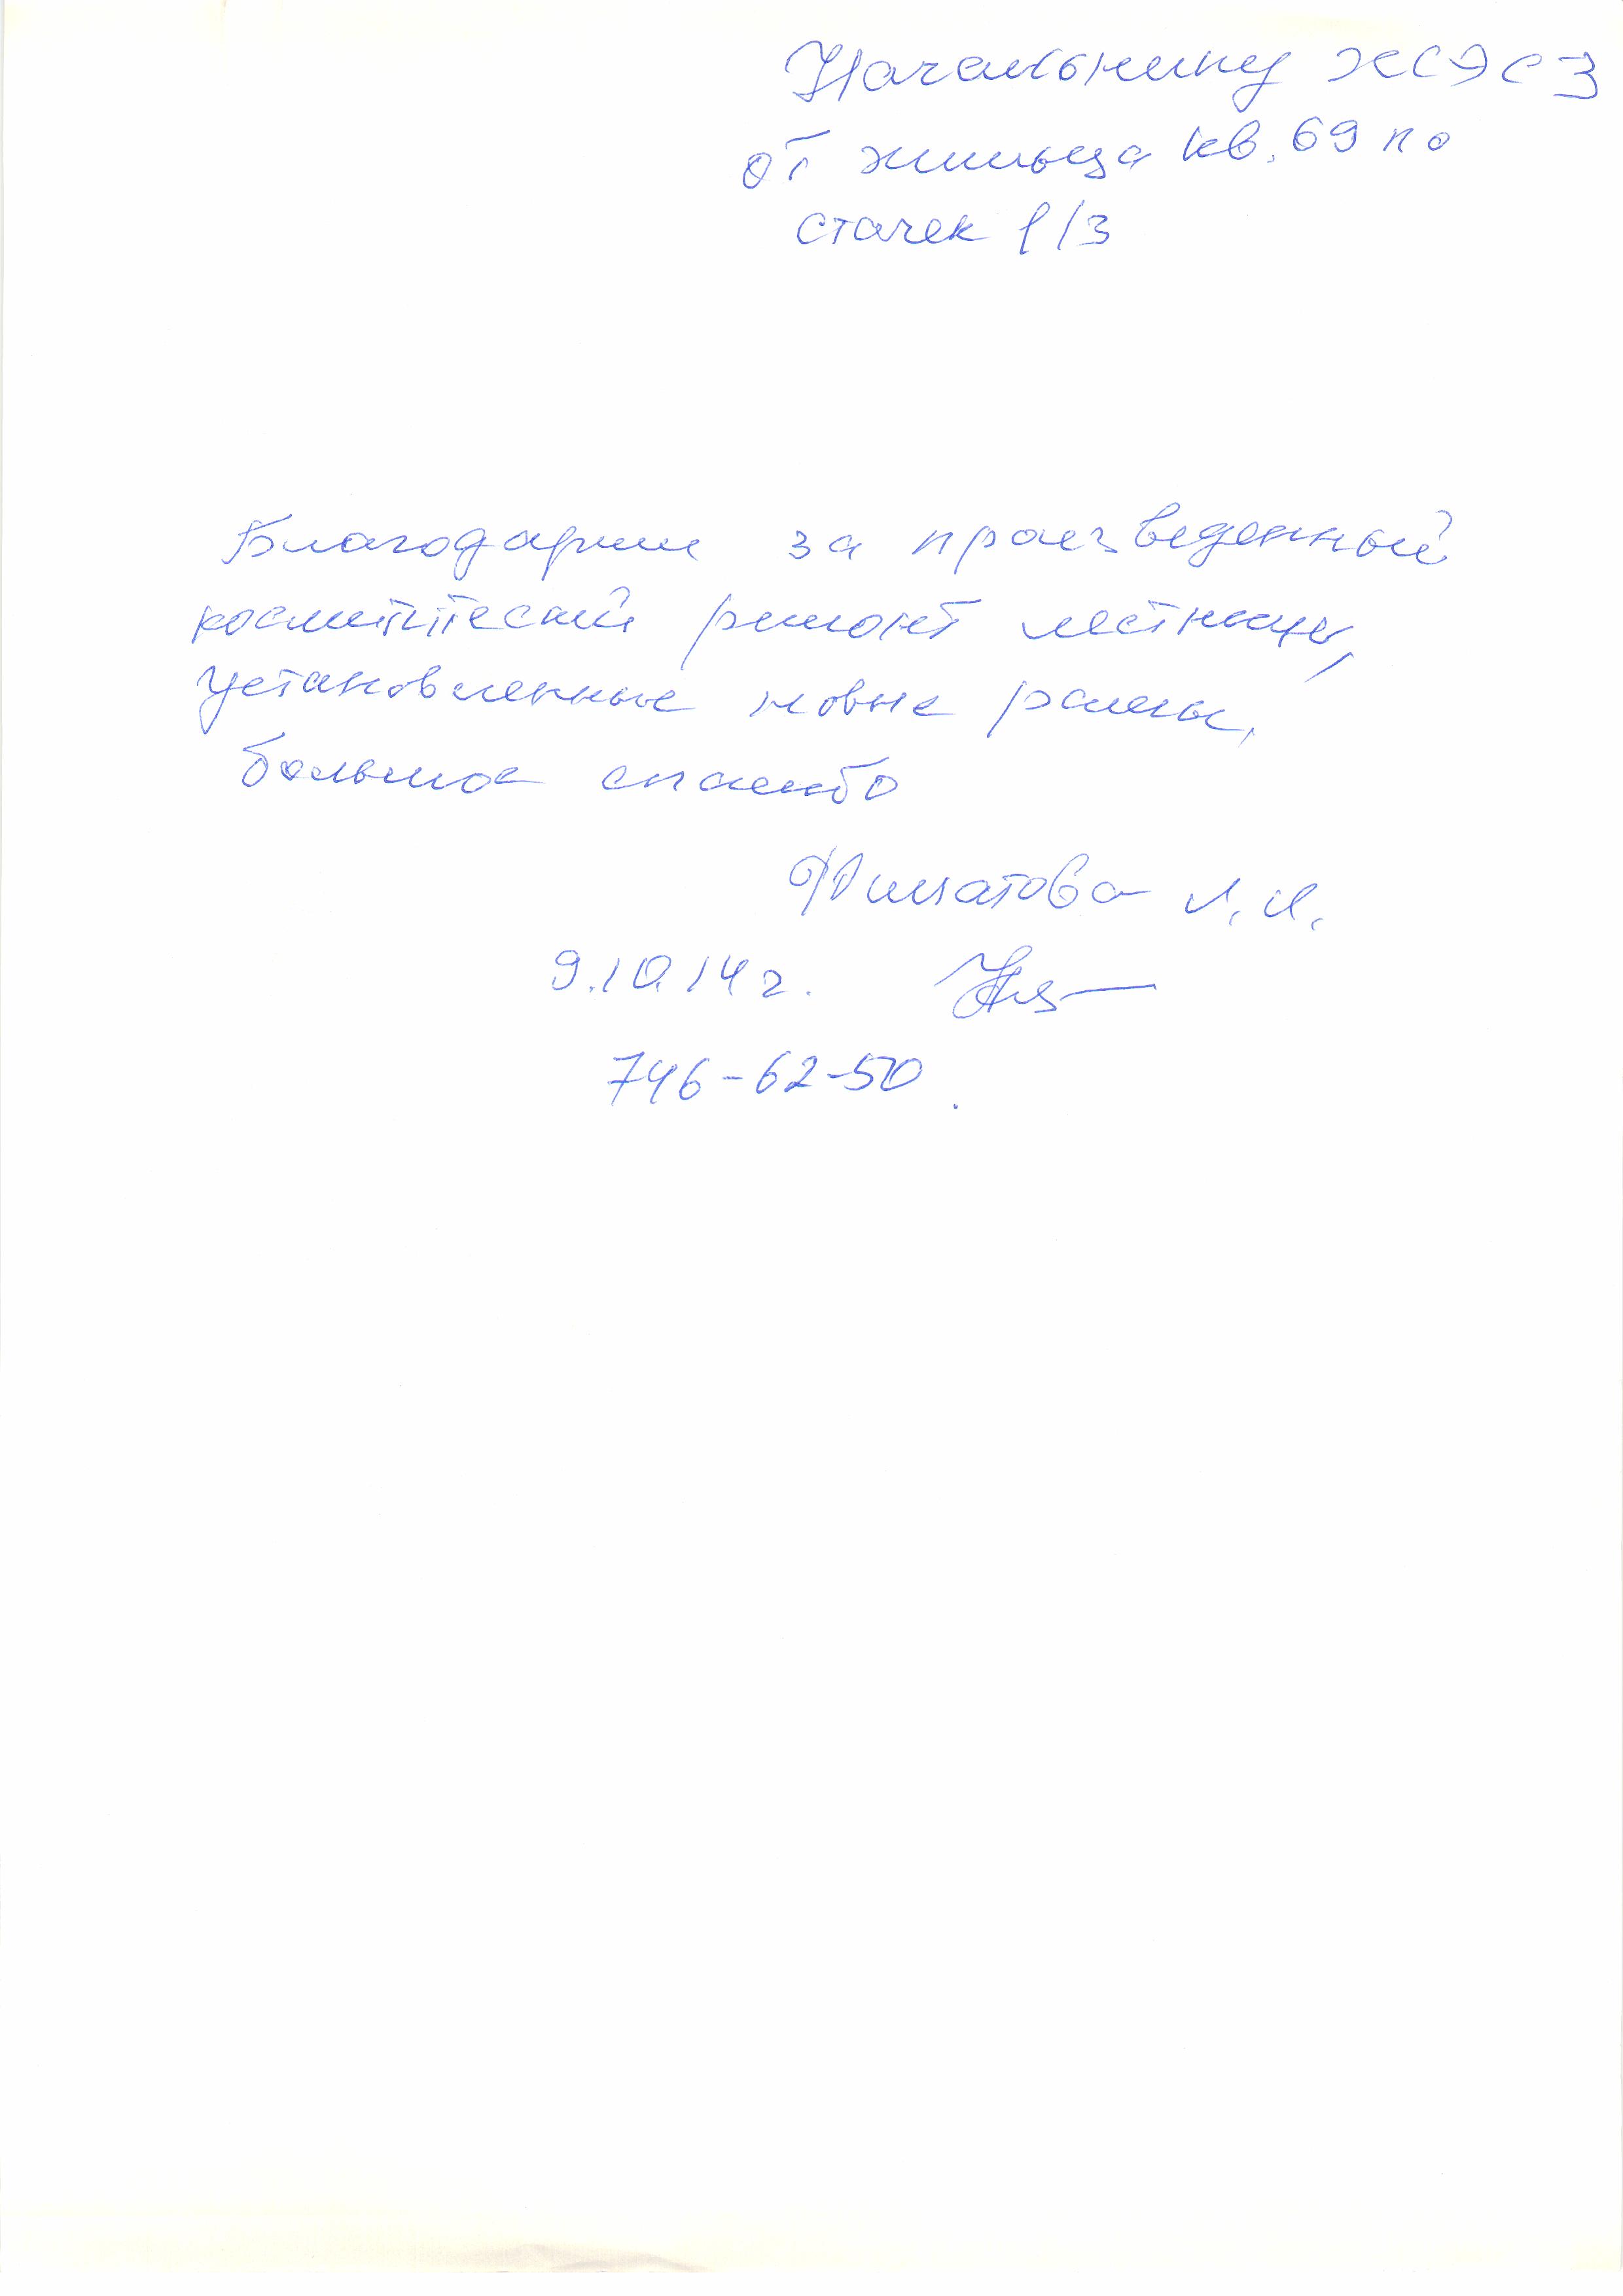 Начальнику ЖСЭС 3
от жильца кв. 69 по
Стачек 1/3
Благодарим за произведенный
косметический ремонт лестницы,
установленные новые рамы,
большое спасибо
Филатова Л. И.
9.10.14 г.
746-62-50.